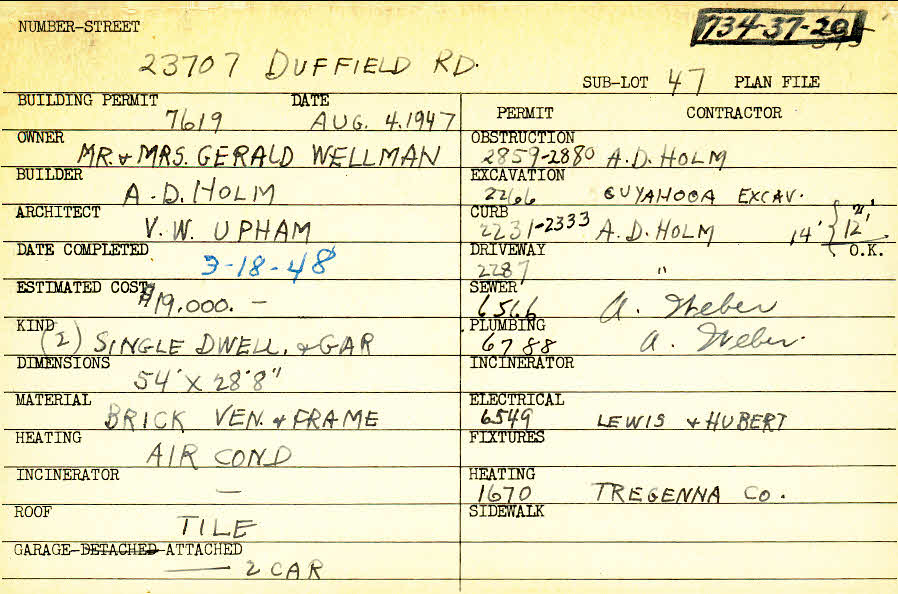 NUMBER-STREET
734-37-20
23707 DUFFIELD RD.
SUB-LOT 47 PLAN FILE
BUILDING PERMIT DATE
7619 AUG. 4. 1947
OWNER
MR. & MRS. GERALD WELLMAN
BUILDER
A. D. HOLM
ARCHITECT
V. W. UPHAM
DATE COMPLETED
3-18-48
ESTIMATED COST
$19,000. —
KIND
(2) SINGLE DWELL. & GAR
DIMENSIONS
54' X 28'8"
MATERIAL
BRICK VEN. & FRAME
HEATING
AIR COND
INCINERATOR
—
ROOF
TILE
GARAGE-DETACHED-ATTACHED
2 CAR
PERMIT CONTRACTOR
OBSTRUCTION
2859-2880 A. D. HOLM
EXCAVATION
2266 CUYAHOGA EXCAV.
CURB
2231-2333 A. D. HOLM 14' { 12'
O.K.
DRIVEWAY
2287 "
SEWER
6566 A. Weber
PLUMBING
6788 A. Weber
INCINERATOR
ELECTRICAL
6549 LEWIS & HUBERT
FIXTURES
HEATING
1670 TREGENNA CO.
SIDEWALK